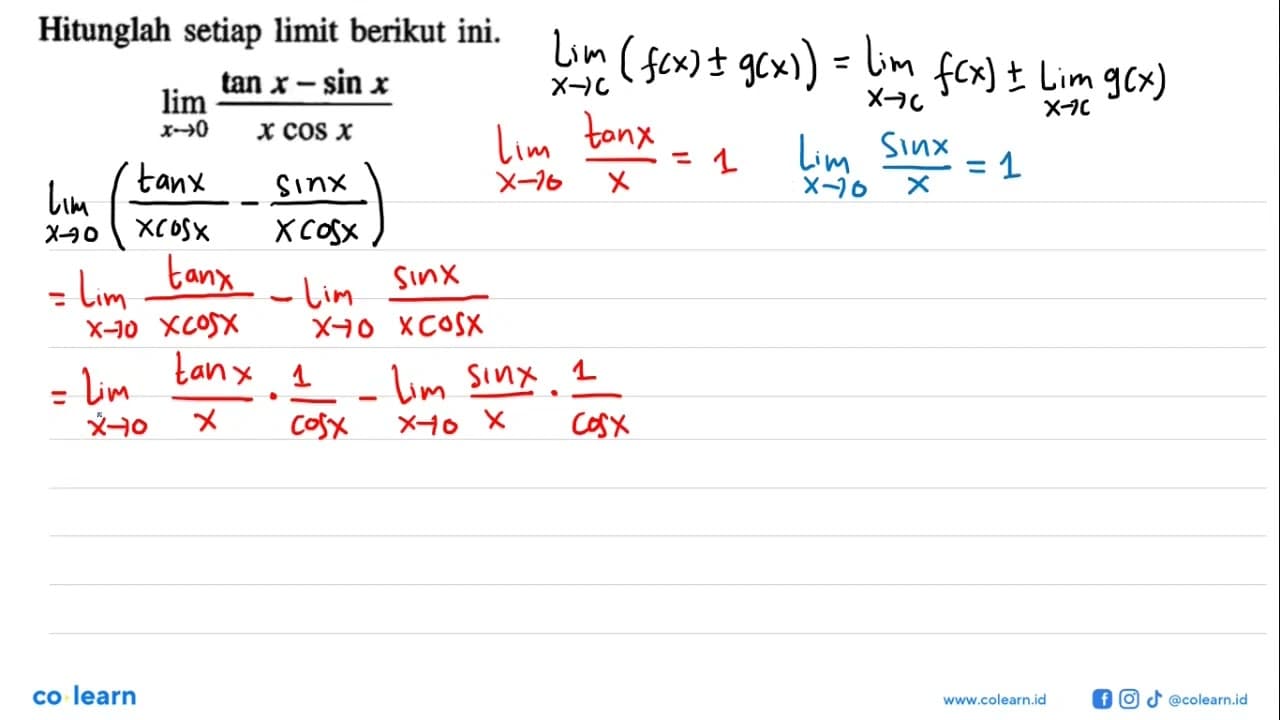 Hitunglah setiap limit berikut ini.
lim x→0 (tan x − sin x)/(x cos x)
lim x→c (f(x) ± g(x)) = lim x→c f(x) ± lim x→c g(x)
lim x→0 tanx/x = 1 lim x→0 sinx/x = 1
lim x→0 (tanx/xcosx − sinx/xcosx)
= lim x→0 tanx/xcosx − lim x→0 sinx/xcosx
= lim x→0 tanx/x · 1/cosx − lim x→0 sinx/x · 1/cosx
co·learn
www.colearn.id
@colearn.id